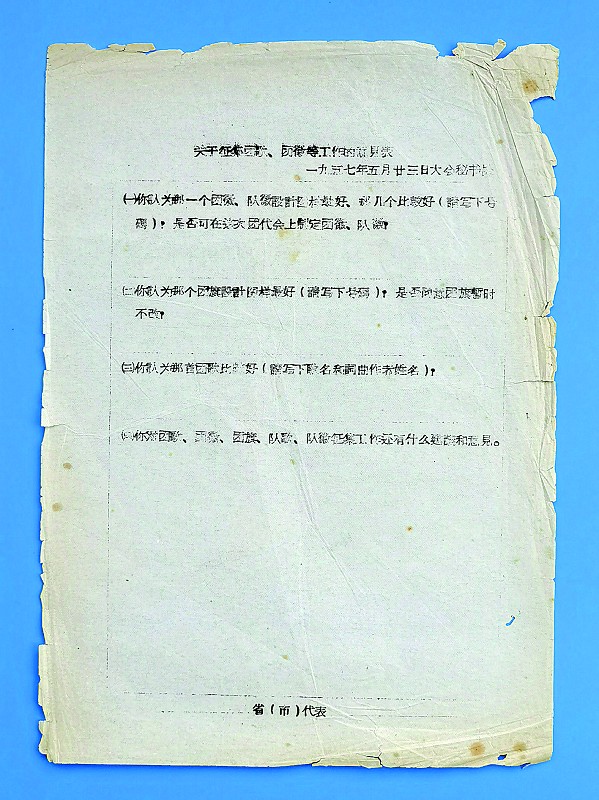 关于征集团歌、团徽等工作的意見表
一九五七年五月廿三日大会秘书处
㈠你认为那一个团徽、队徽設計图样最好、那几个比較好（請写下号
碼）？是否可在这次团代会上制定团徽、队徽？
㈡你认为那个团旗設計图样最好（請写下号碼）？是否同意团旗暫时
不改？
㈢你认为那首团歌比較好（請写下歌名和詞曲作者姓名）？
㈣你对团歌、团徽、团旗、队歌、队徽征集工作还有什么建議和意見。
省（市）代表